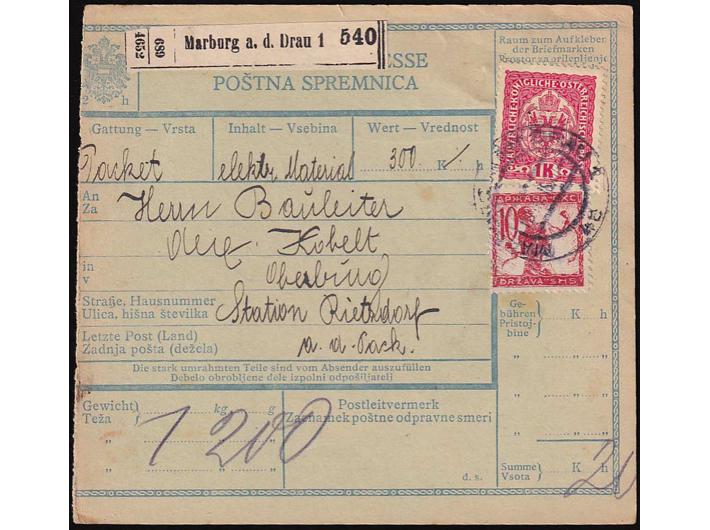 4052
689
Marburg a. d. Drau 1 540
ESSE
POŠTNA SPREMNICA
2 h
Raum zum Aufkleben
der Briefmarken
Prostor za prilepljenje
KAISERLICHE KÖNIGLICHE ÖSTERREICHISCHE
1K
Gattung — Vrsta
Inhalt — Vsebina
Wert — Vrednost
Packet
elektr. Material
300 K h
An
Za
Herrn Bauleiter
Kobelt
in
v
Oberburg
Straße, Hausnummer
Ulica, hišna številka
Station Rietzdorf
Letzte Post (Land)
Zadnja pošta (dežela)
a. d. Pack.
10
ДРЖАВА СХС
DRŽAVA SHS
Ge-
bühren
Pristoj-
bine
K h
Die stark umrahmten Teile sind vom Absender auszufüllen
Debelo obrobljene dele izpolni odpošiljatelj
Gewicht
Teža
kg g
1 200
Postleitvermerk
Zaznamek poštne odpravne smeri
d. s.
Summe
Vsota
K h